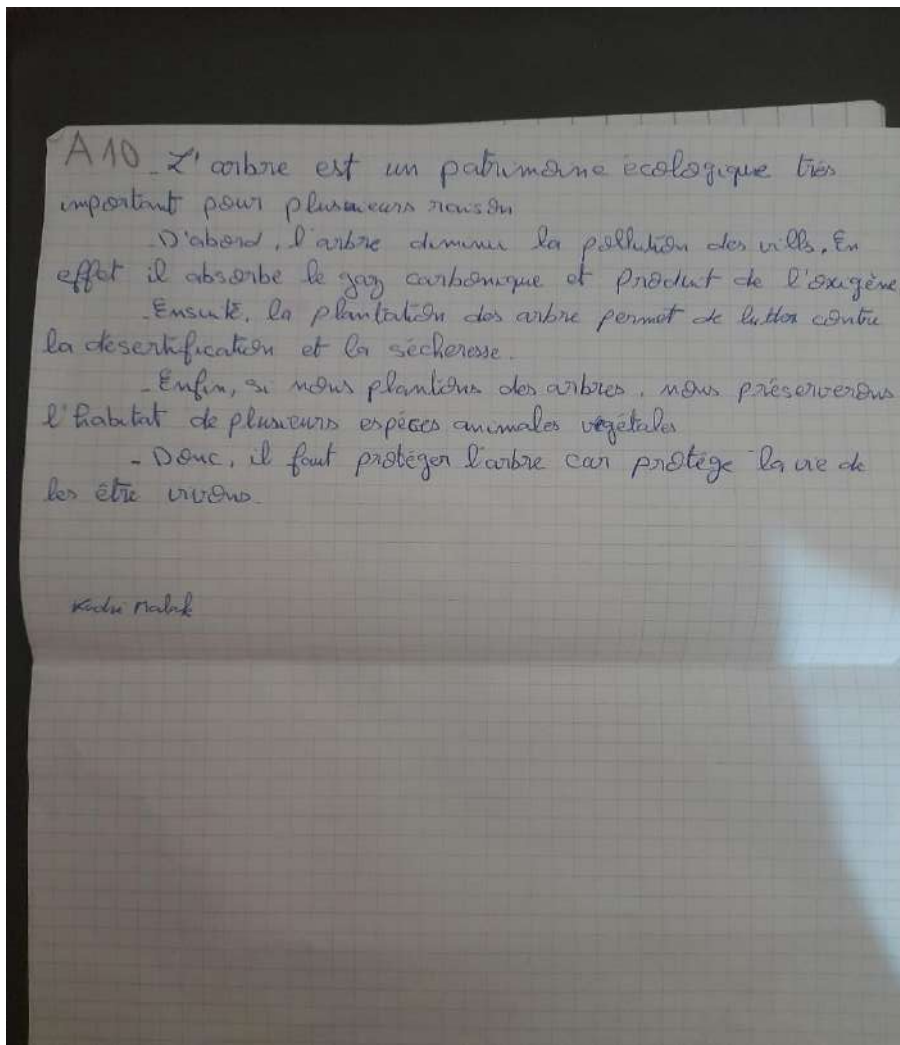 A10 - L'arbre est un patrimoine écologique très
important pour plusieurs raison
- D'abord, l'arbre diminu la pollution des vills. En
effet il absorbe le gaz carbonique et produit de l'oxigène
- Ensuite, la plantation des arbre permet de lutter contre
la désertification et la sécheresse.
- Enfin, si nous plantions des arbres, nous préserverons
l'habitat de plusieurs espèces animales végétales
- Donc, il faut protéger l'arbre car protège la vie de
les être vivons.
Malak